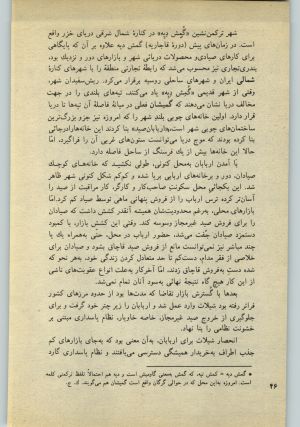 شهر ترکمن‌نشین «گمش دپه» در کنارهٔ شمال شرقی دریای خزر واقع
است. در زمان‌های پیش (دورهٔ قاجاریه) گمش دپه علاوه بر آن که پایگاهی
برای کارهای صیادی و محصولات دریائی شهر و بازارهای دور و نزدیك بود،
بندری تجاری نیز محسوب می‌شد که رابطهٔ تجارتی منطقه را با شهرهای کنارهٔ
شمالی ایران و شهرهای ساحلی روسیه برقرار می‌کرد. ریش‌سفیدان شهر،
وقتی از شهر قدیمی «گمیش دپه» یاد می‌کنند، تپه‌های بلندی را در جهت
مخالف دریا نشان می‌دهند که گمیشان فعلی در میانهٔ فاصلهٔ آن تپه‌ها تا دریا
قرار دارد. اولین خانه‌های چوبی بلند شهر را که امروزه نیز جزو بزرگ‌ترین
ساختمان‌های چوبی شهر است، «اربابان‌صید» بنا کردند این خانه‌ها را در جائی
بنا کرده بودند که موج دریا می‌توانست ستون‌های غربی آن را فراگیرد، امّا
حالا این خانه‌ها بیش از یك فرسنگ از ساحل فاصله دارد.
با آمدن اربابان به‌محل کنونی، طولی نکشید که خانه‌های کوچك
صیادان، دور و بر خانه‌های اربابی برپا شده و کم‌کم شکل کنونی شهر ظاهر
شد. این یکجائی محل سکونت صاحب‌کار و کارگر، کار مراقبت از صید را
آسان‌تر کرده ترس ارباب را از فروش پنهانی ماهی توسط صیاد کم کرد. امّا
بازارهای محلی، به‌رغم محدودیت‌شان همیشه آنقدر کشش داشت که صیادان
را برای فروش صید غیرمجاز وسوسه کند. وقتی این کشش بازار، با کمبود
دستمزد صیادان جفت می‌شد، حضور ارباب در محل، حتی به‌همراه یك یا
چند مباشر نیز نمی‌توانست مانع از فروش صید قاچاق بشود و صیادان برای
خلاصی از فقر مدام، دست‌کم تا حد متعادل کردن زندگی خود، به‌هر نحو که
شده دست به‌فروش قاچاق زدند، امّا آخرکار به‌علت انواع عقوبت‌های ناشی
از این کار هیچ گاه نتیجهٔ نهائی به‌سود آنان تمام نمی‌شد.
بعدها با گسترش بازار تقاضا که مدت‌ها بود از حدود مرزهای کشور
فراتر رفته بود شیلات وارد عمل شد و اربابان را زیر چتر خود گرفت و برای
جلوگیری از خروج صید غیرمجاز، خاصه خاویار، نظام پاسداری مبتنی بر
خشونت نظامی را بنا نهاد.
انحصار شیلات برای اربابان، به‌آن معنی بود که به‌جای بازارهای کم
جذب اطراف به‌خریدار همیشگی دسترسی می‌یافتند و نظام پاسداری گارد
* گمش دپه = گمش تپه، که گمش به‌معنی گاومیش است و دپه هم احتمالاً تلفظ ترکمنی کلمه
است. امروزه به‌این محل که در حوالی گرگان واقع است گمیشان هم می‌گویند. ك. ج.
۴۶